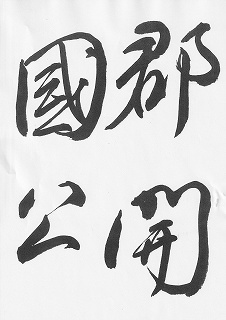 郡開
國公